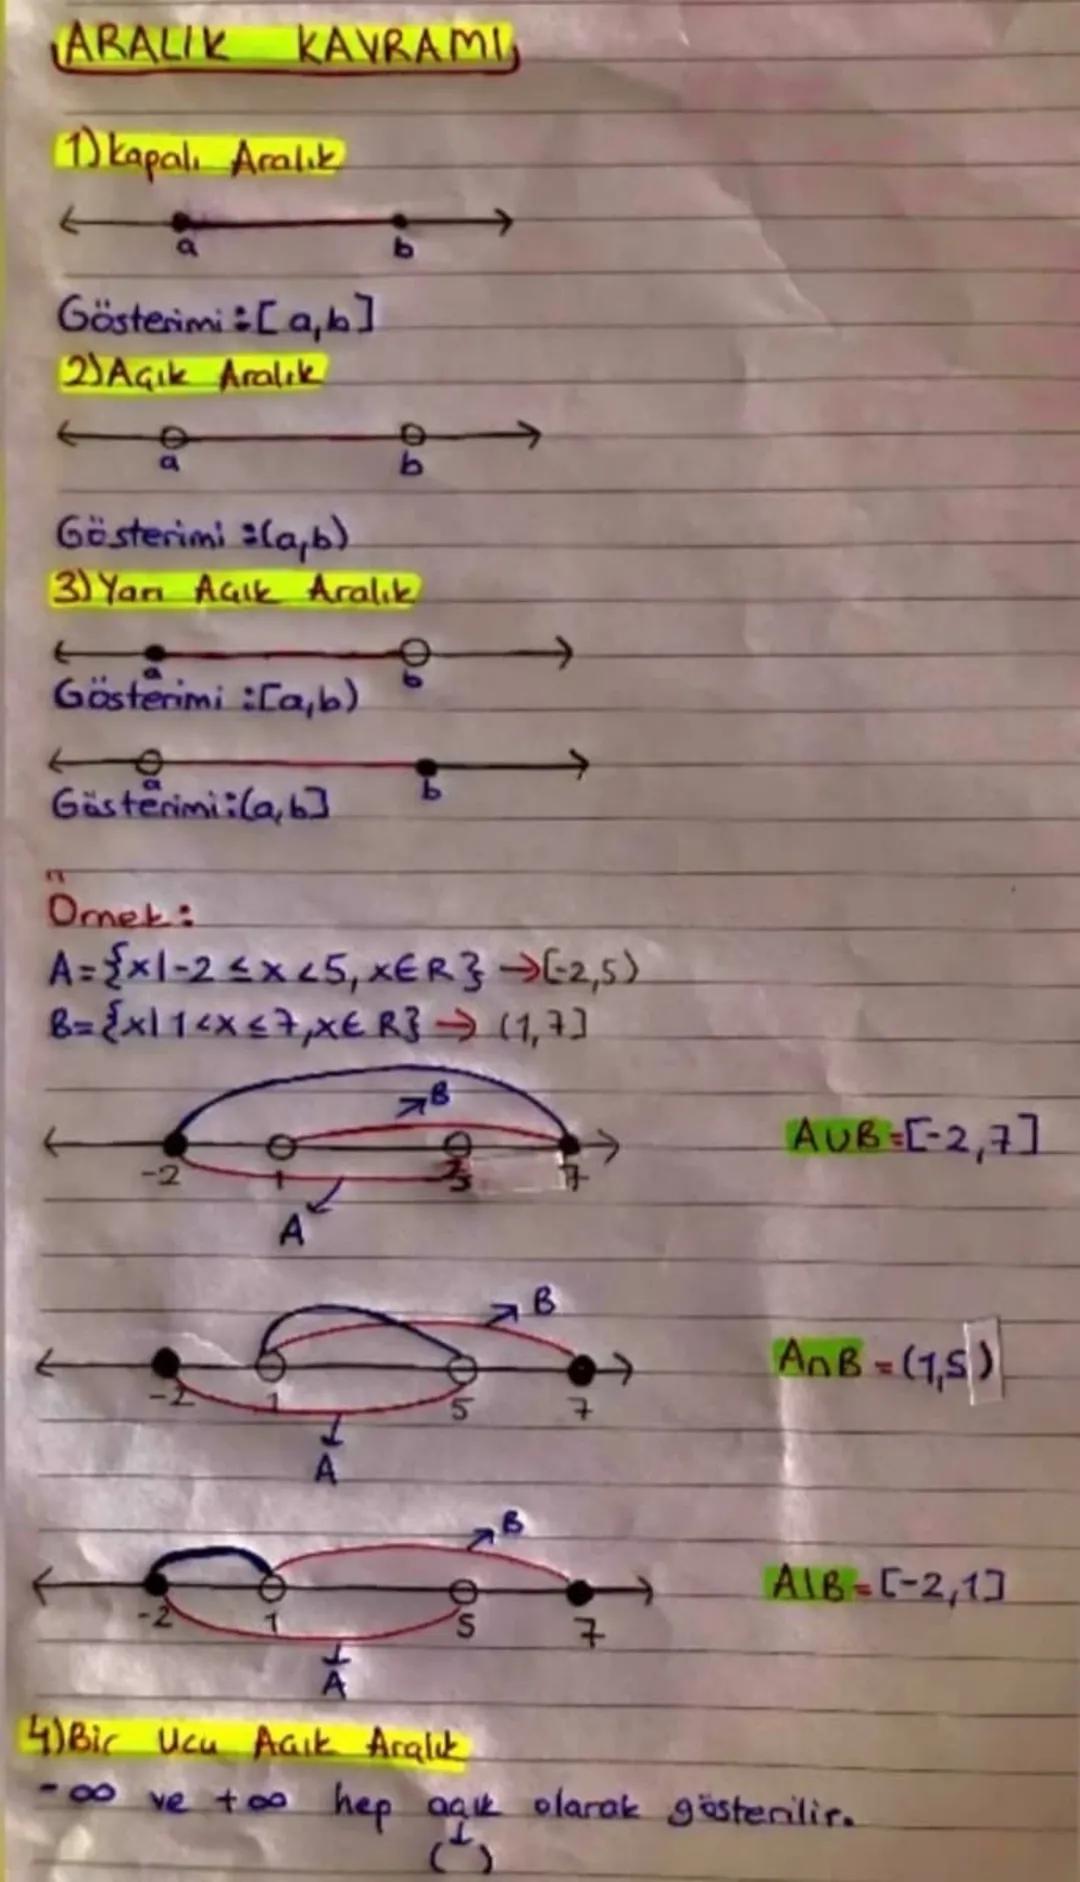 ARALIK KAVRAMI
1) Kapalı Aralık
a b
Gösterimi : [a,b]
2) Açık Aralık
a b
Gösterimi : (a,b)
3) Yarı Açık Aralık
a b
Gösterimi : [a,b)
a b
Gösterimi : (a,b]
Örnek :
A={x|-2≤x<5, x∈R} → [-2,5)
B={x|1<x≤7, x∈R} → (1,7]
B
-2 1 5 7
A
A∪B=[-2,7]
B
-2 1 5 7
A
A∩B=(1,5)
B
-2 1 5 7
A
A\B=[-2,1]
4) Bir Ucu Açık Aralık
-∞ ve +∞ hep açık olarak gösterilir.
( )